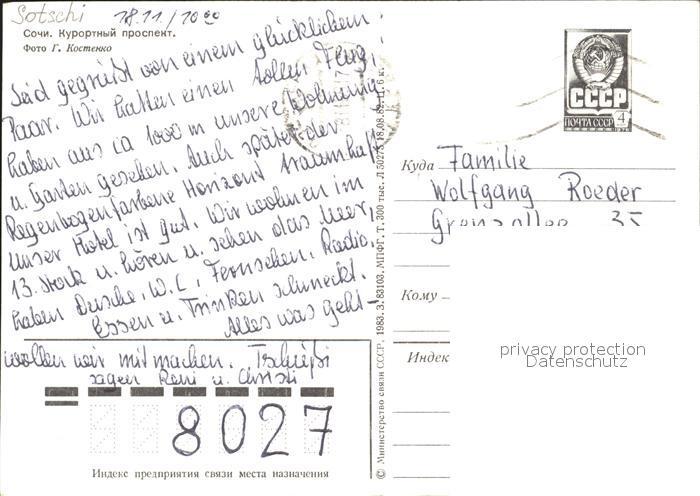 Sotschi 18.11./10 00
Сочи. Курортный проспект.
Фото Г. Костенко
Seid gegrüßt von einem glücklichen
Paar. Wir hatten einen tollen Flug,
haben aus ca 1000 m unsere Wohnung
u. Garten gesehen. Auch später der
Regenbogenfarbene Horizont traumhaft
Unser Hotel ist gut. Wir wohnen im
13. Stock u. hören u. sehen das Meer,
haben Dusche, W.C, Fernsehen, Radio.
Essen u. Trinken schmeckt.
Alles was geht-
wollen wir mitmachen. Tschüßi
sagen Reni u. Christi
8027
Индекс предприятия связи места назначения
© Министерство связи СССР. 1983. З. 83103. МПФГ. Т. 300 тыс. Л 50275. 18.08.82. Ц. 6 к.
СССР
ПОЧТА СССР 4
Куда Familie
Wolfgang Roeder
Grenzallee 35
Кому
Индекс
privacy protection
Datenschutz